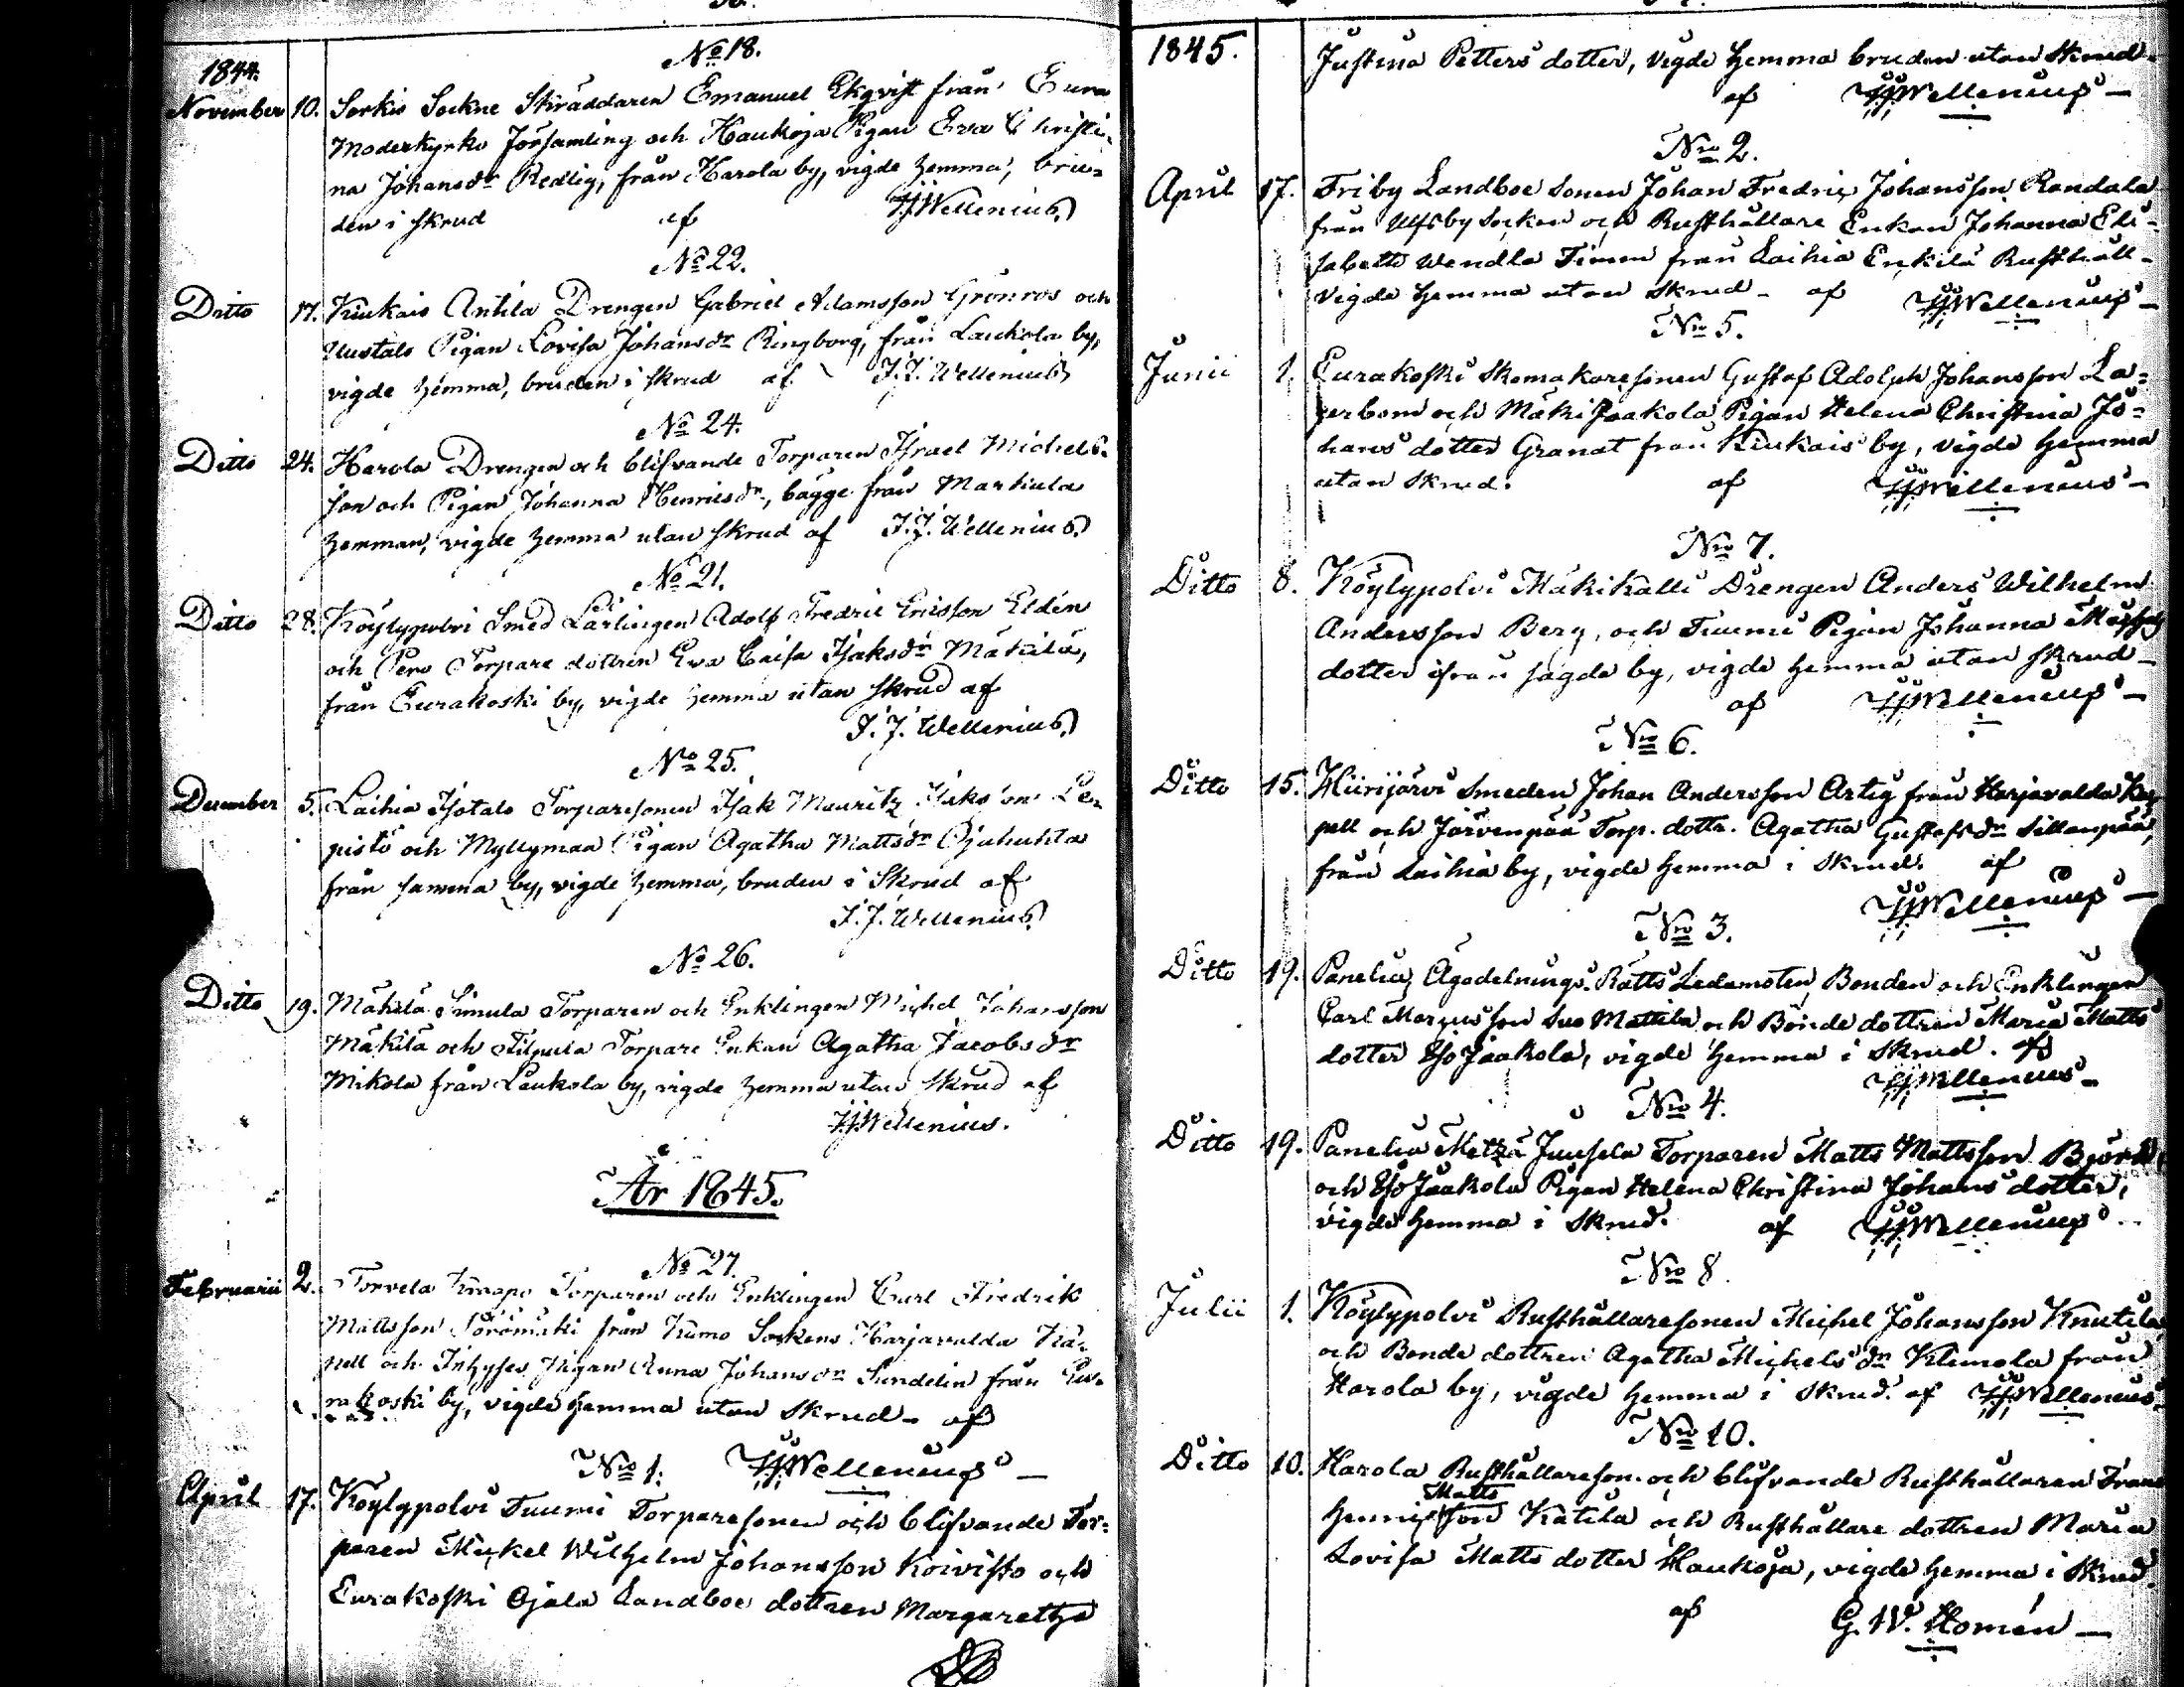 1844.
No 18.
November 10. Sorkis Sockne Skräddaren Emanuel Ekqvist från Eura
Moderkyrko Församling och Haukoja Pigan Eva Christi-
na Johansdr Redlig, från Harola by, vigde hemma, bru-
den i skrud af JJWellenius
No 22.
Ditto 17. Kiukais Antila Drengen Gabriel Adamsson Grönros och
Uustalo Pigan Lovisa Johansdr Ringborg, från Laukola by,
vigde hemma, bruden i skrud af J.J. Wellenius
No 24.
Ditto 24. Harola Drengen och blifvande Torparen Israel Michels-
son och Pigan Johanna Henricsdr, bägge från Martula
hemman, vigde hemma utan skrud af J.J. Wellenius
No 21.
Ditto 28. Köylypolvi Smed Lärlingen Adolf Fredric Ericsson Eldén
och Pero Torpare dottren Eva Caisa Isaksdr Mäkilä,
från Eurakoski by, vigde hemma utan skrud af
J.J. Wellenius
No 25.
December 5. Laihia Isotalo Torparesonen Isak Mauritz Isaksson Le-
pistö och Myllymaa Pigan Agatha Mattsdr Ojahuhta
från samma by, vigde hemma, bruden i Skrud af
J.J. Wellenius
No 26.
Ditto 19. Mäkilä Simula Torparen och Enklingen Michel Johansson
Mäkilä och Filpula Torpare Enkan Agatha Jacobsdr
Mikola från Laukola by, vigde hemma utan skrud af
JJWellenius.
År 1845.
No 27.
Februarii 2. Torvela Torparen och Enklingen Carl Fredrik
Mattsson Sörömäki från Kumo Sockens Harjavalda Ka-
pell och Pigan Anna Johansdr Sundelin från Eu-
rakoski by, vigde hemma utan skrud af
Nro 1. JJWellenius
April 17. Köylypolvi Tuumi Torparesonen och blifvande Tor-
paren Mickel Wilhelm Johansson Koivisto och
Eurakoski Ojala Landboe dottren Margaretha
1845.
Justina Petters dotter, vigde hemma bruden utan Skrud
af JJWellenius
Nro 2.
April 17. Friby Landboe sonen Johan Fredric Johansson Randala
från Ulfsby Socken och Rusthållare Enkan Johanna Eli-
sabeth Wendla Timm från Laihia Enkilä Rusthåll-
vigde hemma utan Skrud af JJWellenius
Nro 5.
Junii 1. Eurakoski Skomakaresonen Gustaf Adolph Johansson La-
gerbom och Mäki Jaakola Pigan Helena Christina Jo-
hans dotter Granat från Kiukais by, vigde hemma
utan Skrud. af JJWellenius
Nro 7.
Ditto 8. Köylypolvi Mäkikalli Drengen Anders Wilhelm
Andersson Berg, och Tuumi Pigan Johanna
dotter ifrån sagde by, vigde hemma utan skrud
af JJWellenius
Nro 6.
Ditto 15. Hiirijärvi Smeden Johan Andersson Artig från Harjavalda Kap-
pell och Järvenpää Torp. dottr. Agatha Gustafsdr Sillanpää,
från Laihia by, vigde hemma i Skrud. af
JJWellenius
Nro 3.
Ditto 19. Panelia Ägodelnings-Rätts Ledamoten, Bonden och Enklingen
Carl Marcusson Suo Mattila och Bonde dottren Maria Matts
dotter Iso Jaakola, vigde hemma i Skrud. af
JJWellenius
Nro 4.
Ditto 19. Panelia Metzä Juusela Torparen Matts Mattsson Björk
och Iso Jaakola Pigan Helena Christina Johans dotter,
vigde hemma i Skrud. af JJWellenius
Nro 8.
Julii 1. Köylypolvi Rusthållaresonen Michel Johansson Knutila,
och Bonde dottren Agatha Michelsdr Klemola från
Harola by, vigde hemma i Skrud. af JJWellenius
Nro 10.
Ditto 10. Harola Rusthållareson. och blifvande Rusthållaren Frans
Matts
Henricsson Katila och Rusthållare dottren Maria
Lovisa Matts dotter Haukoja, vigde hemma i Skrud.
af G.W. Homén